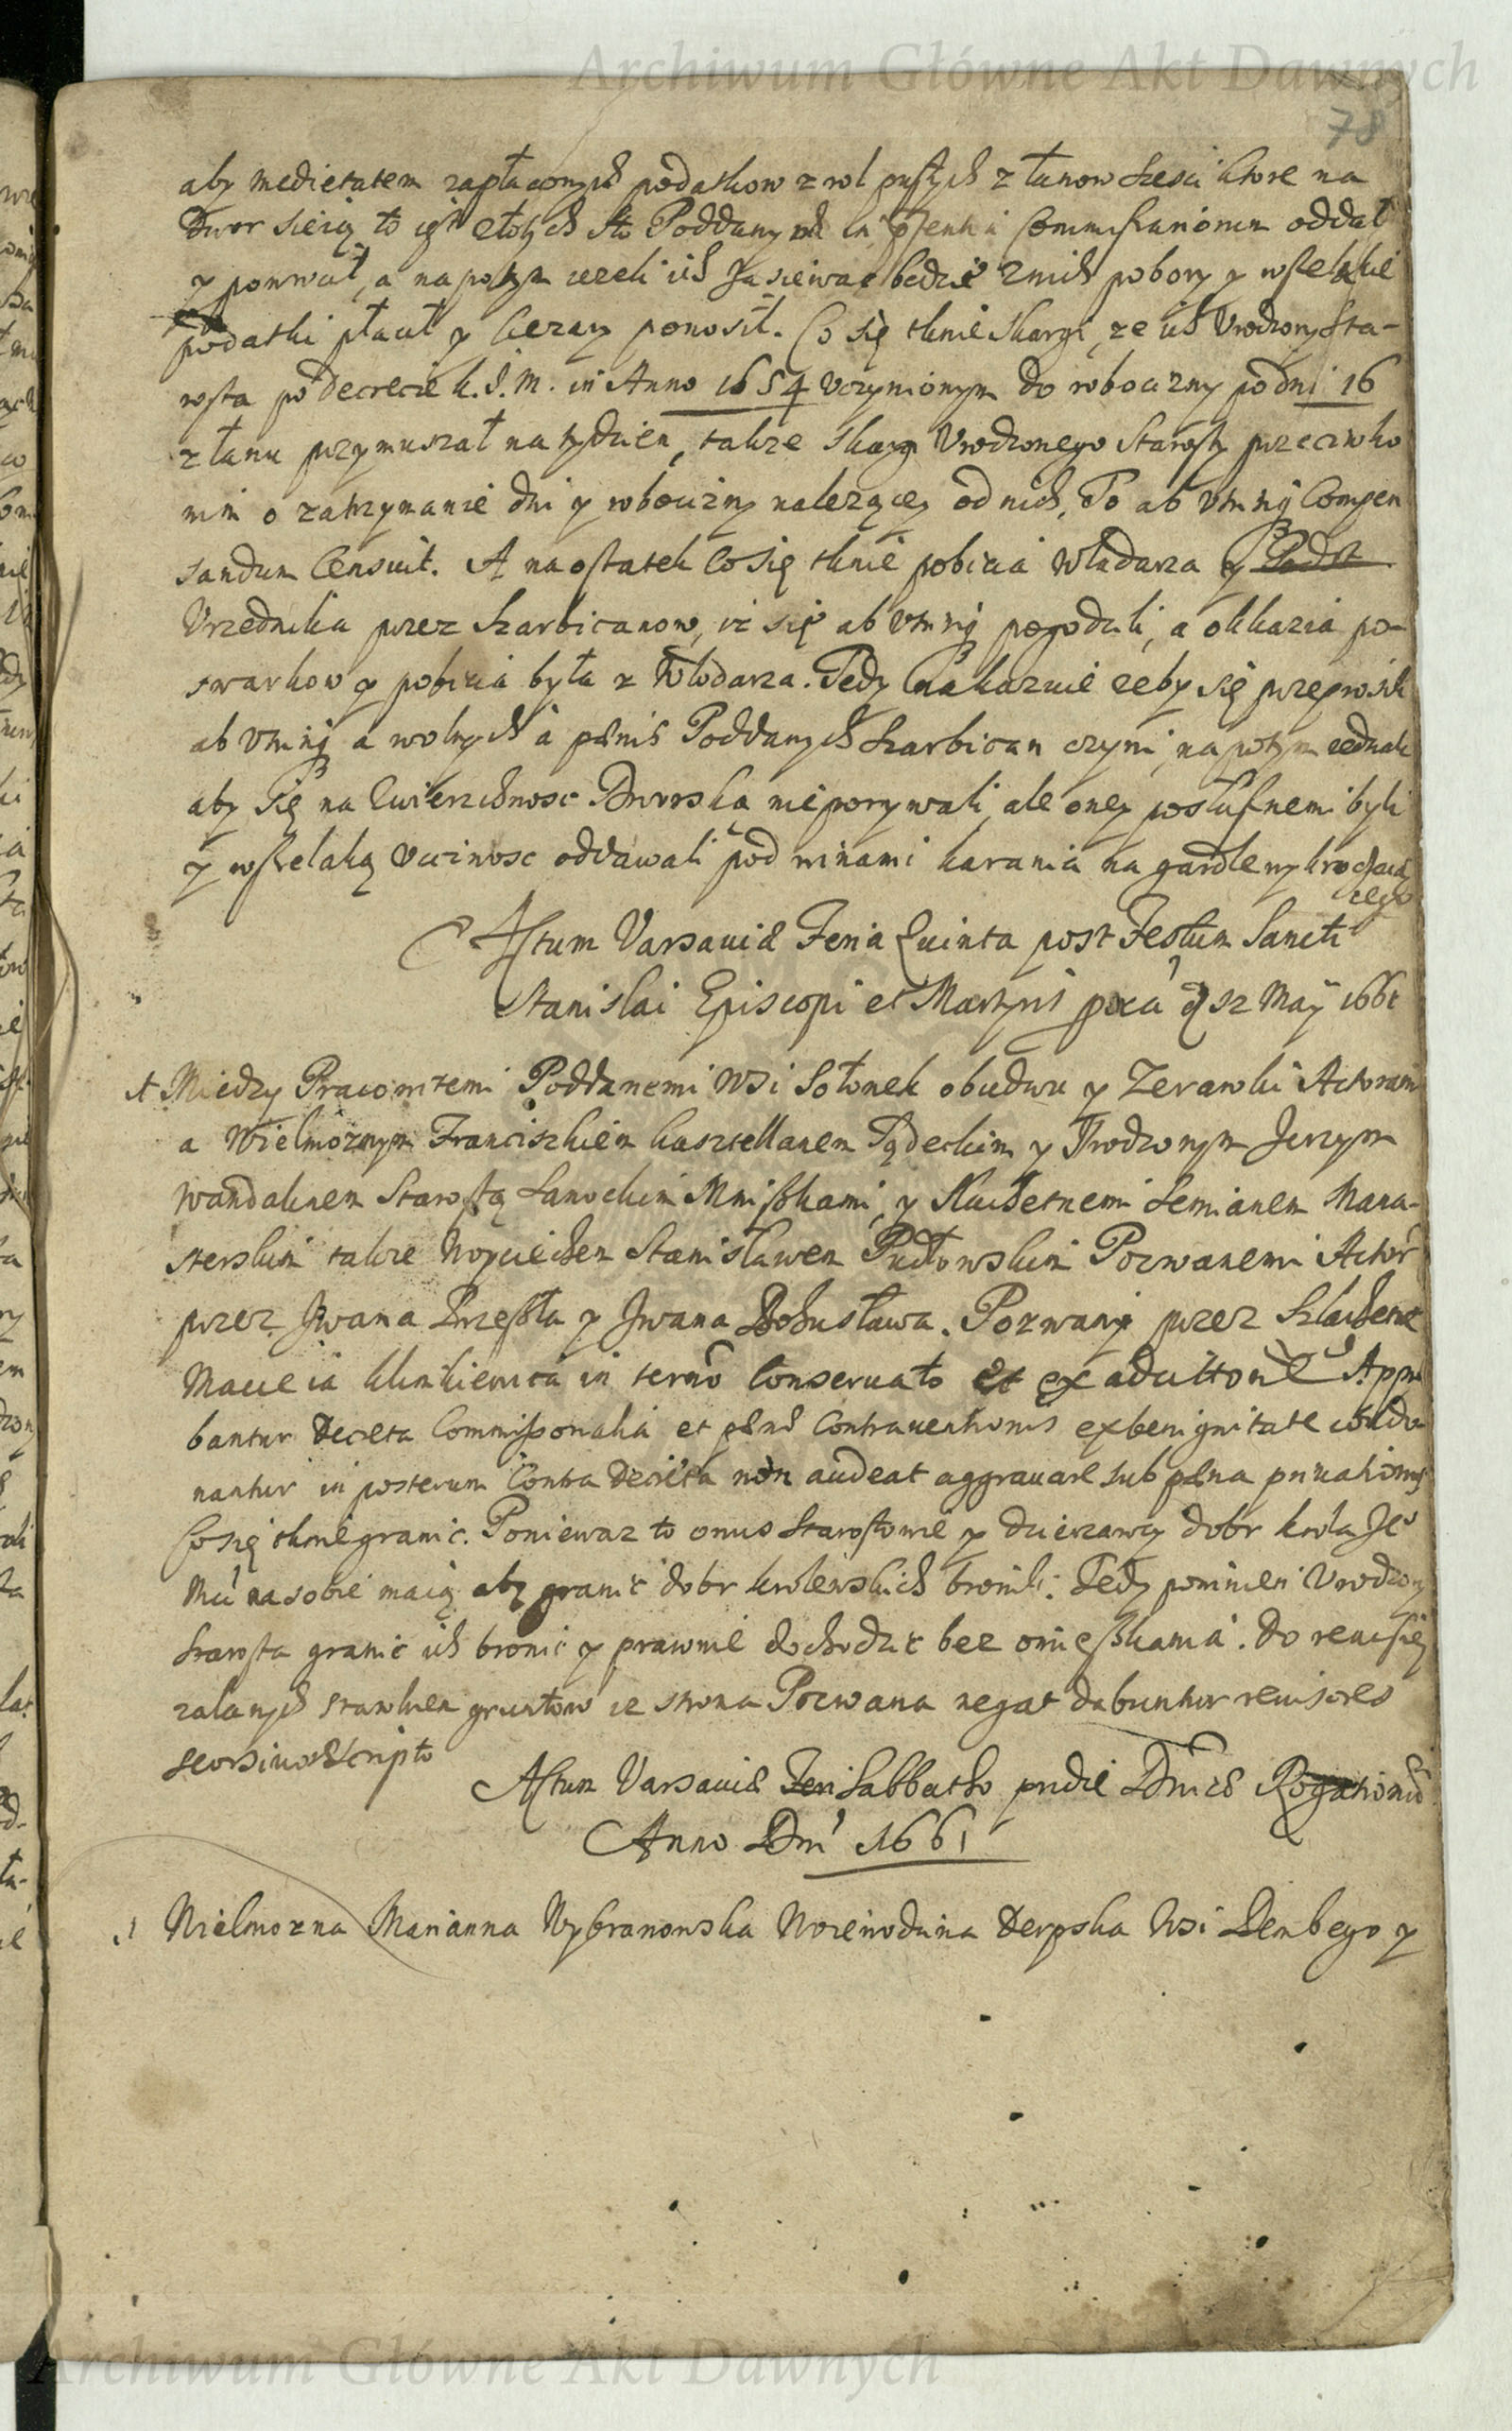 Archiwum Główne Akt Dawnych
78
aby medietatem zapłaconych podatkow z rol pustych z łanow szesci ktore na
Dwor sieią to iest złotych sto Poddanym in Commissariorum oddał
y ponował, a napotym iezeli ich zasiewac będzie z nich pobory y wszelakie
podatki płacił y ciezary ponosił. Co się tknie skargi, ze ich Vrodzony Sta-
rosta po Decrecie K. J. M. in Anno 1654 vczynionym do robocizny po dni 16
z łanu przymuszał na tydzien, takze skarga Vrodzonego Starosty przeciwko
nim o zatrzymanie dni y robocizny nalezącey od nich, To ab vtrinq compen
sandum censuit. A na ostatek co się tknie pobicia Władarza y Podst
Vrzednika przez Szarbicanow, iz się ab vtrinq pogodzili, a okkazia po-
swarkow y pobicia była z Włodarza. Tedy nakazuie zeby się przeprosili
ab vtrinq a wolnych à pænis Poddanych Szarbican czyni, napotym iednak
aby się na zwierzchnosc Dworską nieporywali, ale oney posłusznemi byli
y wszelaką vczinosc oddawali pod winami karania na gardle wykraczaią
cego
Actum Varsauiæ Feria Quinta post Festum Sancti
Stanislai Episcopi et Martyris 12 May 1661
Miedzy Pracowitemi Poddanemi Wsi Sołonek obudwu y Zerawki Actorami
a Wielmoznym Franciszkiem Kasztellanem Sądeckim y Vrodzonym Jerzym
Wandalinem Starostą Sanockim Mniszkami, y Szlachetnemi Semianem Mana-
sterskim takze Woyciechem Stanisławem Pudłowskim Pozwanemi Actor
przez Jwana y Jwana Bohusława. Pozwany przez Szlachetne
Macieia Klimkiewicza in termo conseruato et ex aducittone Appro
bantur Decreta Commissorialia et pænæ contrauentionis ex benignitate condo
nantur in posterum contra Decreta non audeat aggrauare sub pæna priuationis
Co się tknie granic. Poniewaz to onus Starostowie y dzierzawcy dobr Krola Je
Mci na sobie maią aby granic dobr krolewskich bronili. Tedy powinien Vrodzony
Starosta granic ich bronic y prawnie dochodzic bez omieszkania. Do reuisiey
zalanych stawkiem gruntow ze strona Pozwana negat dabuntur reuisores
seorsiuo Scripto
Actum Varsauiæ Feri Sabbatho pridie Dnicæ Rogationũ
Anno Dni 1661
Wielmozna Marianna Wybranowska Woiewodzina Derpska Wsi Dembego y
Archiwum Główne Akt Dawnych